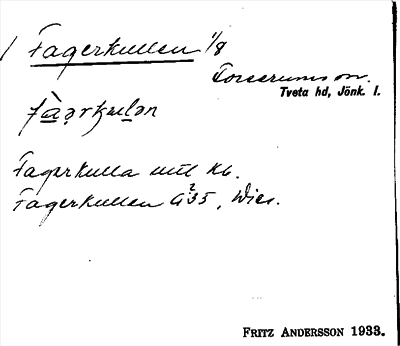 Fagerkullen 1/8
Forserums sn.
Tveta hd, Jönk. l.
Fagerkulla utll Kb.
Fagerkullen G 35, Wies.
FRITZ ANDERSSON 1933.